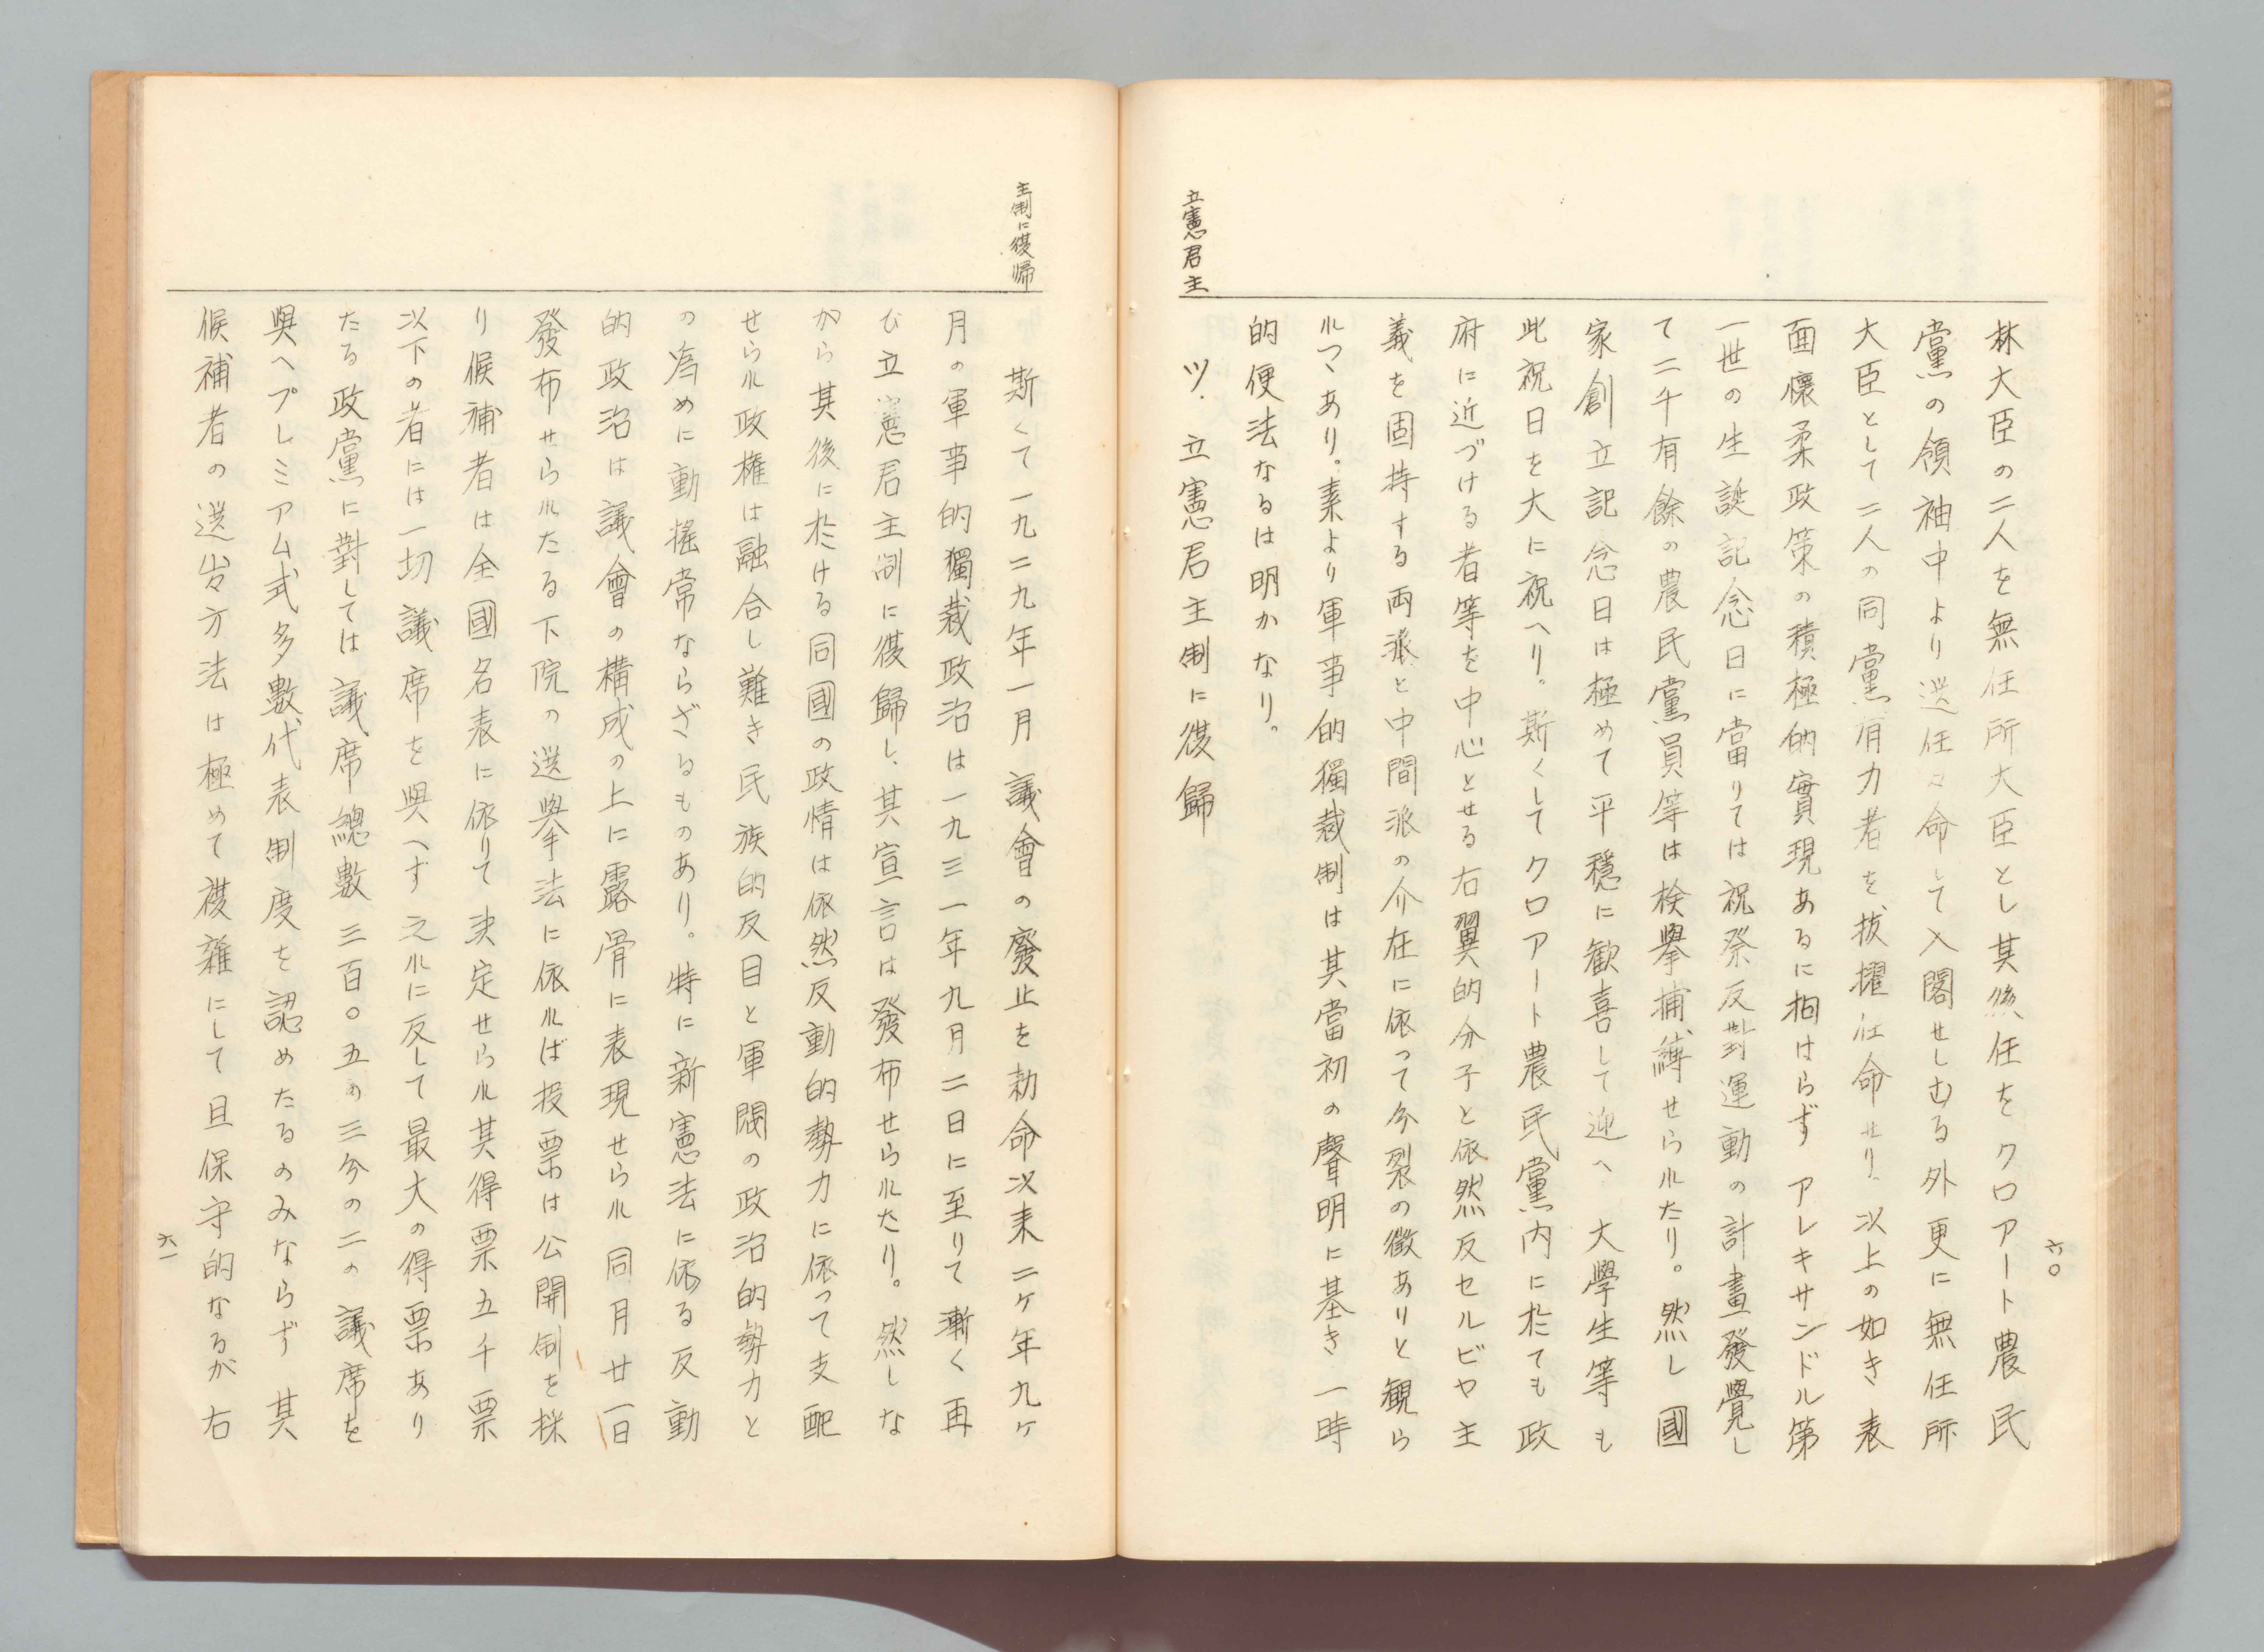 六〇
立憲君主
林大臣の二人を無任所大臣とし其後任をクロアート農民
黨の領袖中より選任々命して入閣せしむる外更に無任所
大臣として二人の同黨有力者を拔擢任命せり。以上の如き表
面懷柔政策の積極的實現あるに拘はらず アレキサンドル第
一世の生誕記念日に當りては祝祭反對運動の計畫發覺し
て二千有餘の農民黨員等は検擧捕縛せられたり。然し國
家創立記念日は極めて平穩に歓喜して迎へ 大學生等も
此祝日を大に祝へり。斯くしてクロアート農民黨內に於ても政
府に近づける者等を中心とせる右翼的分子と依然反セルビヤ主
義を固持する両派と中間派の介在に依って分裂の徴ありと観ら
れつゝあり。素より軍事的獨裁制は其當初の聲明に基き一時
的便法なるは明かなり。
ツ．立憲君主制に復歸
主制に復帰
斯くて一九二九年一月議會の廢止を勅命以来二ヶ年九ヶ
月の軍事的獨裁政治は一九三一年九月二日に至りて漸く再
び立憲君主制に復歸し、其宣言は發布せられたり。然しな
がら其後に於ける同國の政情は依然反動的勢力に依って支配
せられ政権は融合し難き民族的反目と軍閥の政治的勢力と
の爲めに動搖常ならざるものあり。特に新憲法に依る反動
的政治は議會の構成の上に露骨に表現せられ同月廿一日
發布せられたる下院の選擧法に依れば投票は公開制を採
り候補者は全國名表に依りて決定せられ其得票五千票
以下の者には一切議席を與へず之れに反して最大の得票あり
たる政黨に對しては議席總數三百〇五の三分の二の議席を
與へプレミアム式多數代表制度を認めたるのみならず 其
候補者の選出方法は極めて複雑にして且保守的なるが右
六一